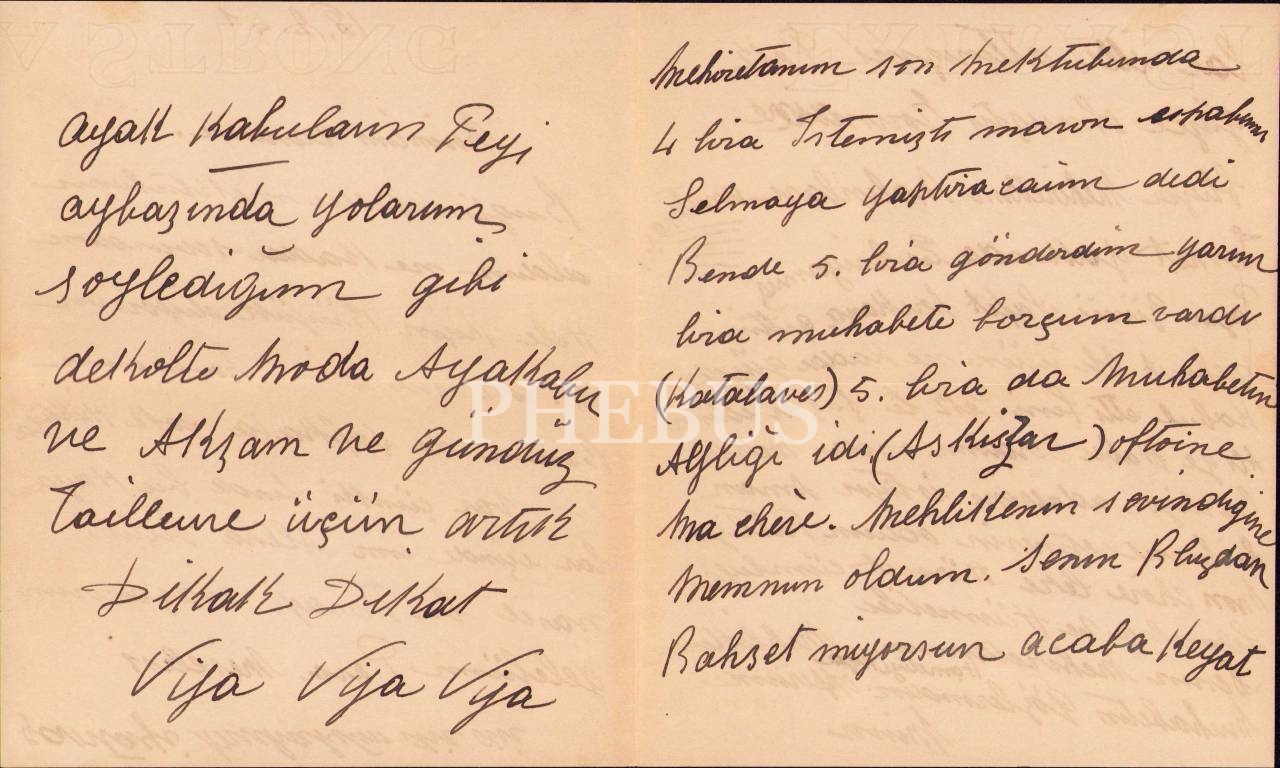 Ayak Kabuların Feyi
aybaşında yolarım
soylediğim gibi
dekolte Moda Ayakabu
ve Akşam ve gündüz
Tailleure üçün artık
Dikak Dikat
Vija Vija Vija
son Mektubunda
4 lira Istemişti maron
Selmaya yaptıracaim dedi
Bende 5. lira gönderdim yarım
lira muhabete borçum vardı
(Katalaves) 5. lira da Muhabetin
Aylığı idi (As Kişzar) oftoine
Ma chère. Mehlikenin sevindigine
Memnun oldum. Senin Bluzdan
Bahset miyorsun acaba Keyat
PHEBUS